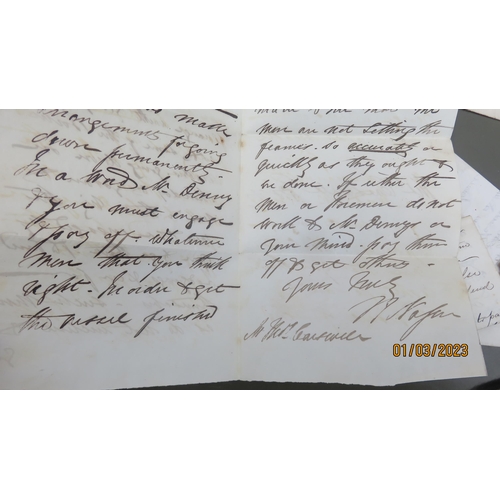 made
arrangements for going
down permanently.
In a word Mr Denny
& you must engage
& pay off. Whatever
men that you think
right. In order to get
the vessel finished
the
men are not setting the
frames so accurately or
quickly as they ought to
be done. If either the
men or Foremen do not
work to Mr Dennys or
your mind. pay them
off & get others.
Yours truly
01/03/2023